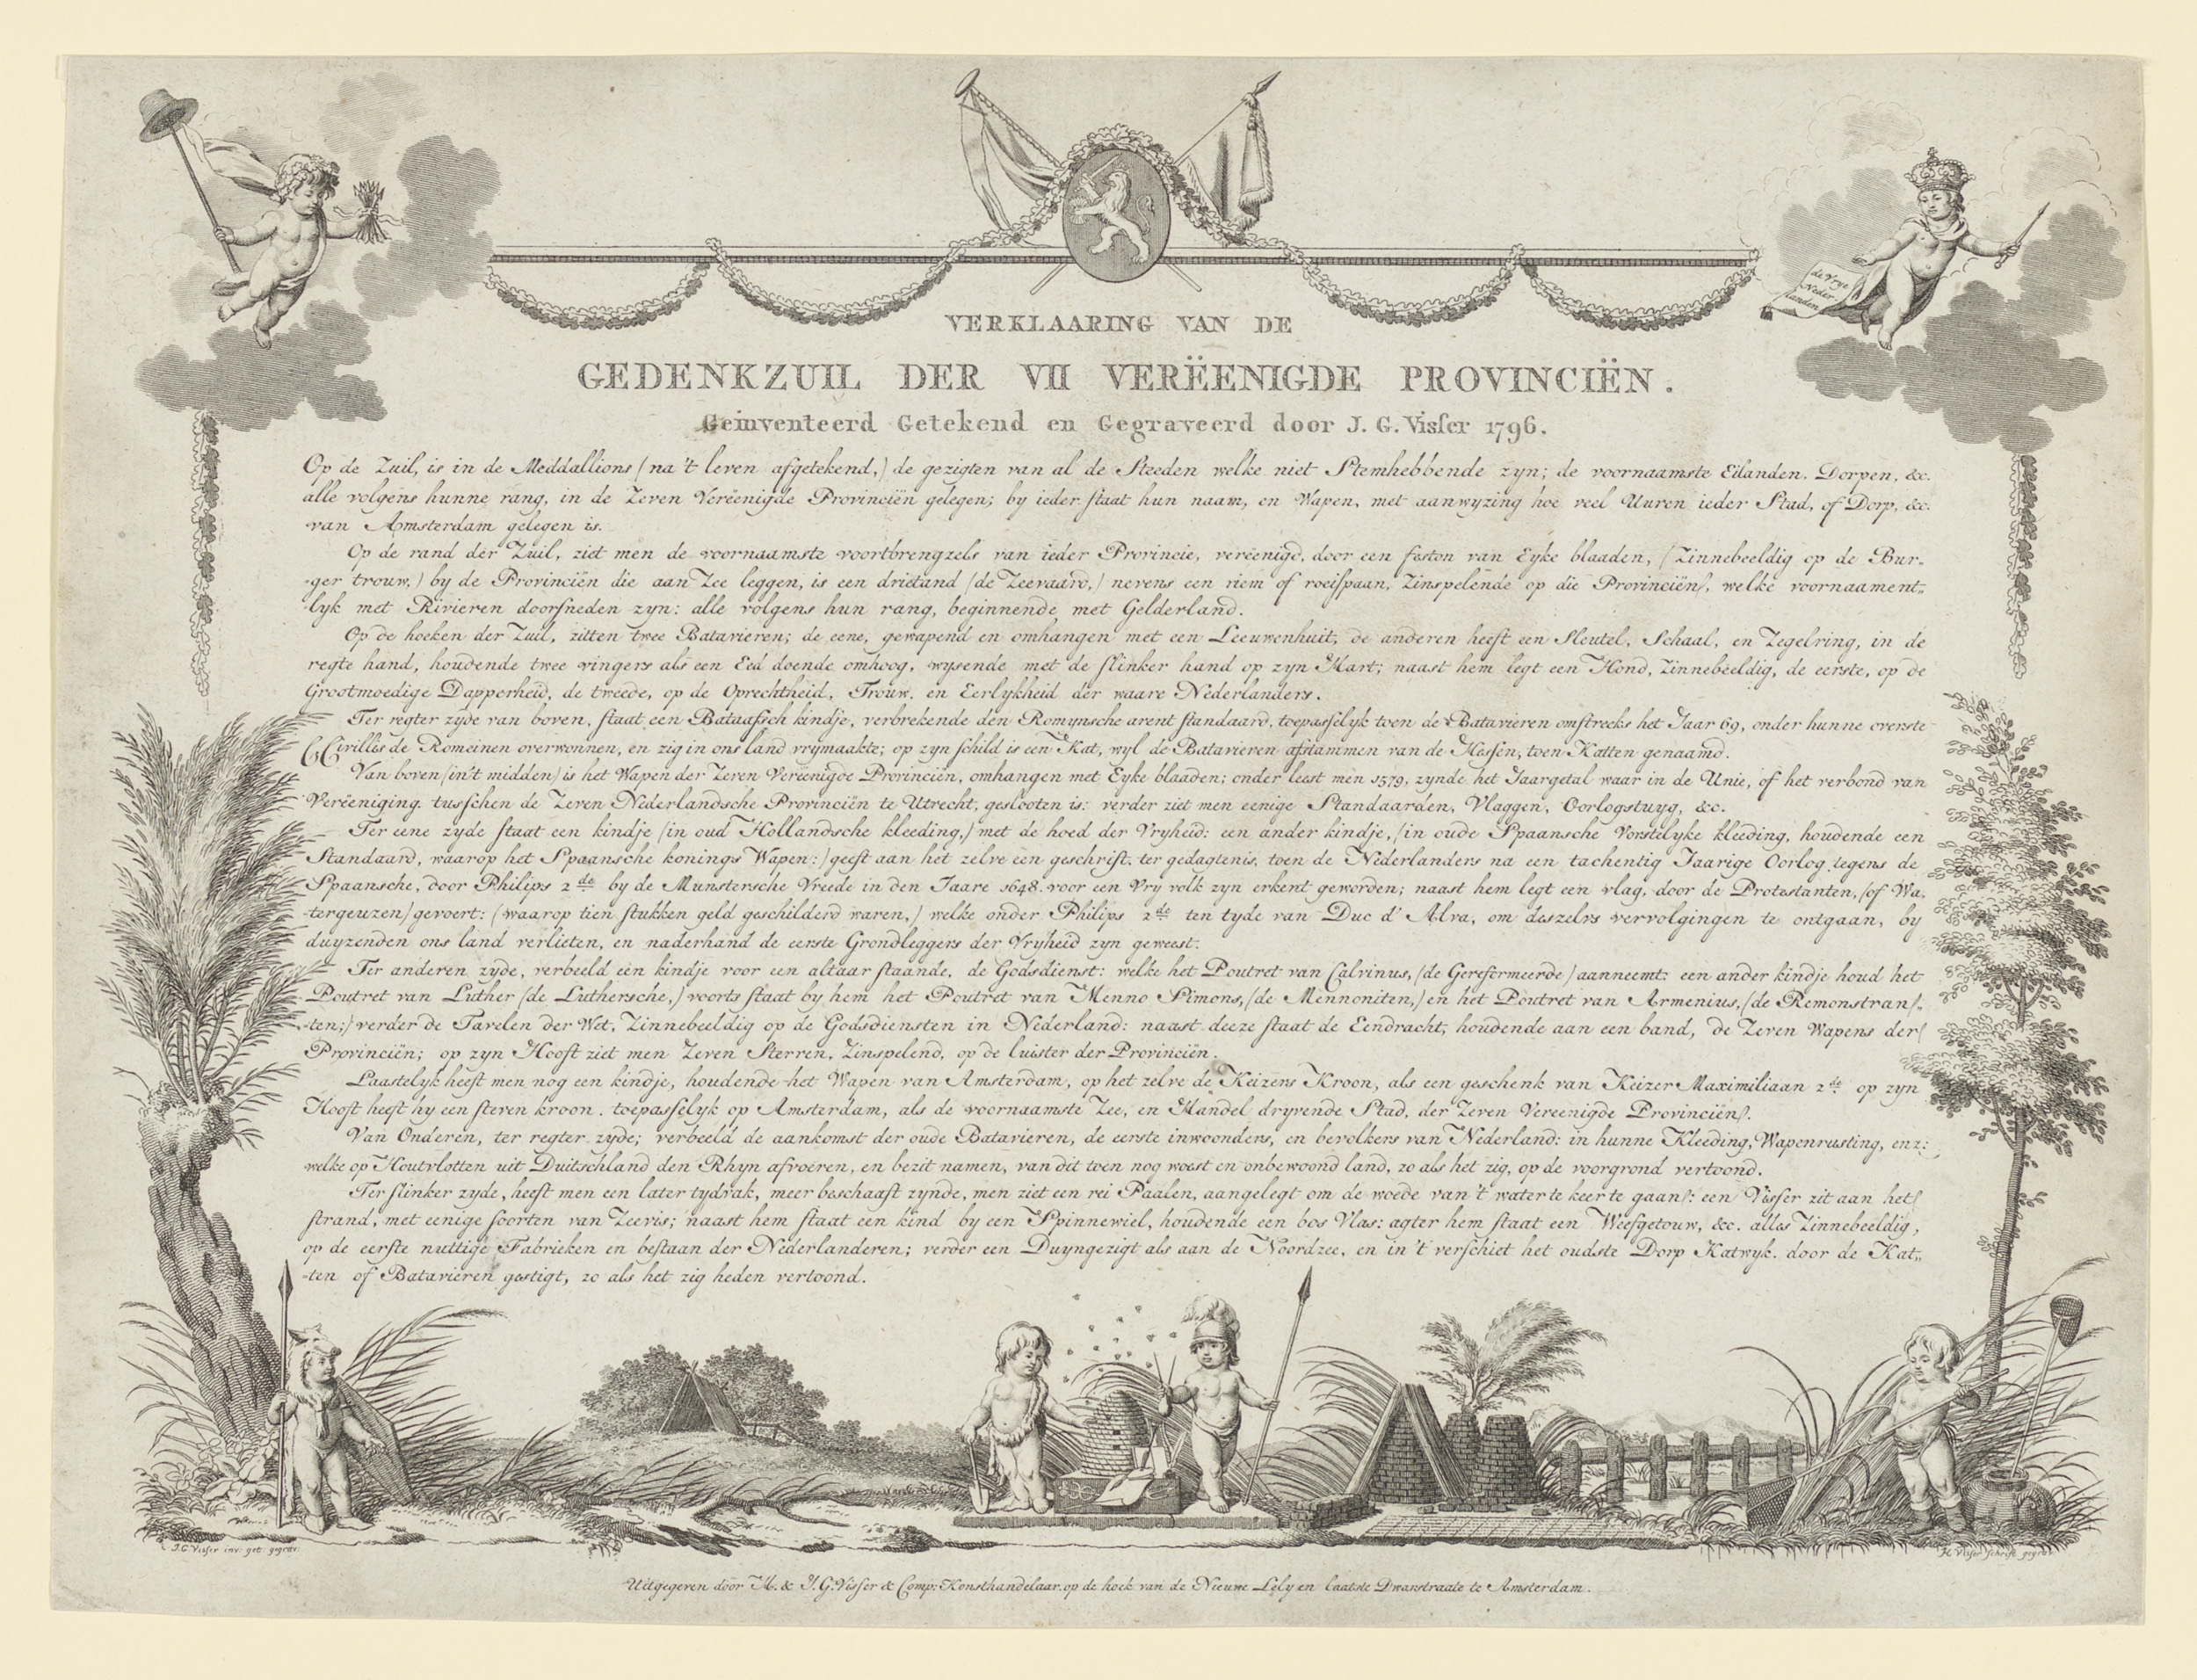 de Vrye
Neder
landen
VERKLAARING VAN DE
GEDENKZUIL DER VII VERËENIGDE PROVINCIËN.
Geinventeerd Getekend en Gegraveerd door J. G. Visſer 1796.
Op de Zuil, is in de Meddallions (na 't leven afgetekend,) de gezigten van al de Steeden welke niet Stemhebbende zyn; de voornaamste Eilanden. Dorpen, &c.
alle volgens hunne rang, in de Zeven Verëenigde Provinciën gelegen; by ieder ſtaat hun naam, en Wapen, met aanwyzing hoe veel Uuren ieder Stad, of Dorp, &c.
van Amsterdam gelegen is.
Op de rand der Zuil, ziet men de voornaamste voortbrengzels van ieder Provincie, verëenigd, door een feston van Eyke blaaden, (Zinnebeeldig op de Bur-
-ger trouw,) by de Provinciën die aan Zee leggen, is een drietand (de Zeevaard,) nevens een riem of roeiſpaan, Zinspelende op die Provinciën, welke voornaament-
-lyk met Rivieren doorſneden zyn: alle volgens hun rang, beginnende met Gelderland.
Op de hoeken der Zuil, zitten twee Batavieren; de eene, gewapend en omhangen met een Leeuwenhuit, de anderen heeft een Sleutel, Schaal, en Zegelring, in de
regte hand, houdende twee vingers als een Eed doende omhoog, wysende met de ſlinker hand op zyn Hart; naast hem legt een Hond, Zinnebeeldig, de eerste, op de
Grootmoedige Dapperheid, de tweede, op de Oprechtheid, Trouw, en Eerlykheid der waare Nederlanders.
Ter regter zyde van boven, ſtaat een Bataafsch kindje, verbrekende den Romynsche arent ſtandaard, toepasſelyk toen de Batavieren omſtreeks het Jaar 69, onder hunne overste
Civillis de Romeinen overwonnen, en zig in ons land vrymaakte; op zyn ſchild is een Kat, wyl de Batavieren afstammen van de Hesſen, toen Katten genaamd.
Van boven (in't midden) is het Wapen der Zeven Verëenigde Provinciën, omhangen met Eyke blaaden; onder leest men 1579, zynde het Jaargetal waar in de Unie, of het verbond van
Verëeniging tusſchen de Zeven Nederlandsche Provinciën te Utrecht, geslooten is: verder ziet men eenige Standaarden, Vlaggen, Oorlogstuyg, &c.
Ter eene zyde ſtaat een kindje (in oud Hollandsche kleeding,) met de hoed der Vryheid: een ander kindje, (in oude Spaansche Vorstelyke kleeding, houdende een
Standaard, waarop het Spaansche konings Wapen:) geeft aan het zelve een geschrift, ter gedagtenis, toen de Nederlanders na een tachentig Jaarige Oorlog tegens de
Spaansche, door Philips 2de by de Munstersche Vreede in den Jaare 1648. voor een Vry volk zyn erkent geworden; naast hem legt een vlag, door de Protestanten, (of Wa-
-tergeuzen) gevoert: (waarop tien ſtukken geld geschilderd waren,) welke onder Philips 2de ten tyde van Duc d' Alva, om deszelvs vervolgingen te ontgaan, by
duyzenden ons land verlieten, en naderhand de eerste Grondleggers der Vryheid zyn geweest.
Ter anderen zyde, verbeeld een kindje voor een altaar ſtaande, de Godsdienst: welke het Poutret van Calvinus, (de Gereformeerde) aanneemt: een ander kindje houd het
Poutret van Luther (de Luthersche,) voorts ſtaat by hem het Poutret van Menno Simons, (de Mennoniten,) en het Poutret van Armenius, (de Remonstran-
-ten;) verder de Tavelen der Wet, Zinnebeeldig op de Godsdiensten in Nederland: naast deeze ſtaat de Eendracht, houdende aan een band, de Zeven Wapens der
Provinciën; op zyn Hooft ziet men Zeven Sterren, Zinspelend, op de luister der Provinciën.
Laastelyk heeft men nog een kindje, houdende het Wapen van Amsterdam, op het zelve de Keizers Kroon, als een geschenk van Keizer Maximiliaan 2de op zyn
Hooft heeft hy een ſteren kroon, toepasſelyk op Amsterdam, als de voornaamste Zee, en Handel dryvende Stad, der Zeven Vereenigde Provinciën.
Van Onderen, ter regter zyde; verbeeld de aankomst der oude Batavieren, de eerste inwoonders, en bevolkers van Nederland: in hunne Kleeding, Wapenrusting, enz:
welke op Houtvlotten uit Duitschland den Rhyn afvoeren, en bezit namen, van dit toen nog woest en onbewoond land, zo als het zig, op de voorgrond vertoond.
Ter ſlinker zyde, heeft men een later tydvak, meer beschaaft zynde, men ziet een rei Paalen, aangelegt om de woede van 't water te keer te gaan: een Visſer zit aan het
ſtrand, met eenige ſoorten van Zeevis; naast hem ſtaat een kind by een Spinnewiel, houdende een bos Vlas: agter hem ſtaat een Weefgetouw, &c. alles Zinnebeeldig,
op de eerſte nuttige Fabrieken en beſtaan der Nederlanderen; verder een Duyngezigt als aan de Noordzee, en in 't verſchiet het oudste Dorp Katwyk. door de Kat-
-ten of Batavieren gestigt, zo als het zig heden vertoond.
J. G. Visſer inv. get. gegrav.
H. Visſer Schrift gegrav.
Uitgegeven door H. & J. G. Visſer & Comp: Konsthandelaar. op de hoek van de Nieuwe Lely en laatste Dwarsstraate te Amsterdam.